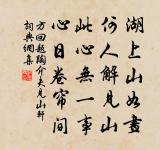 湖上山如畫
何人解見山
此心無一事
心日卷帘间
方回題陶介夫見山軒
詞典網集